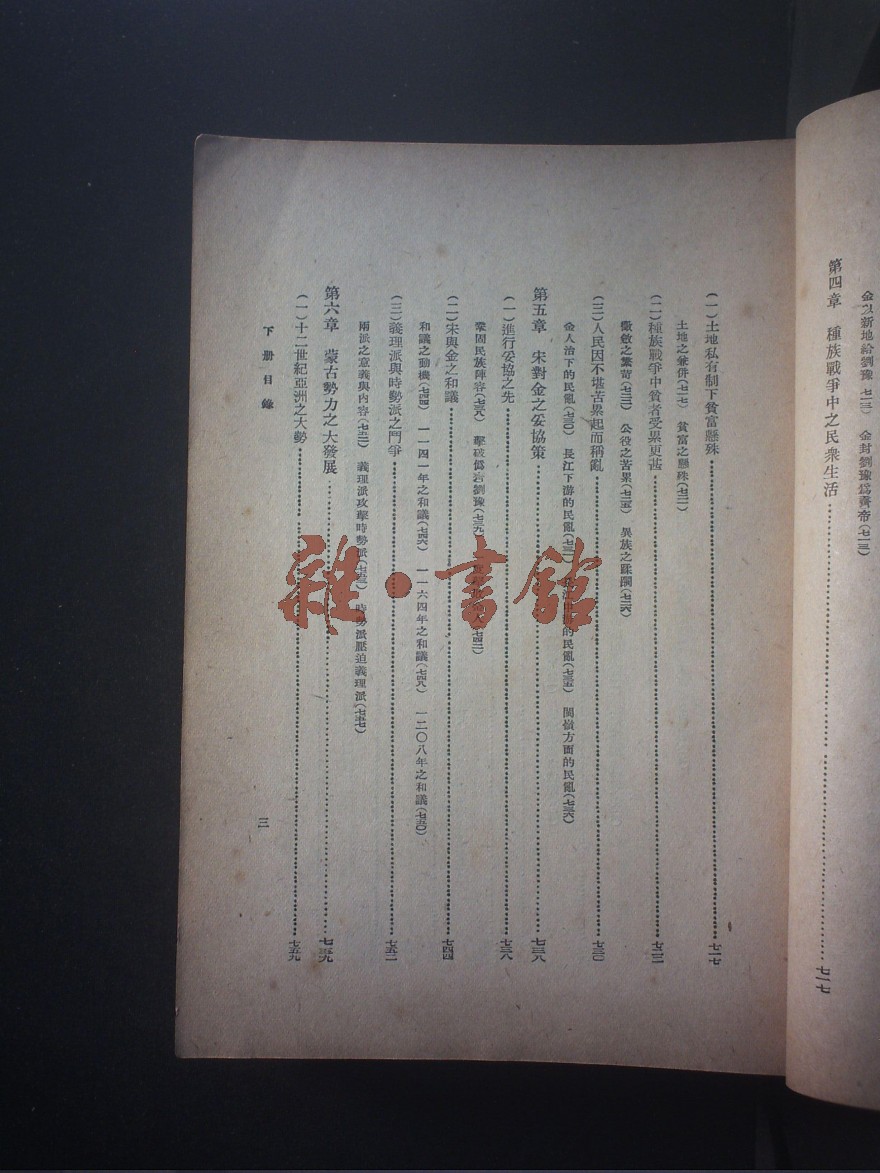 金以新地給劉豫(七一三) 金封劉豫爲齊帝(七一三)
第四章 種族戰爭中之民衆生活……七一七
(一)土地私有制下貧富懸殊……七一七
土地之兼併(七一七) 貧富之懸殊(七二一)
(二)種族戰爭中貧者受累更甚……七二二
徵斂之繁苛(七二二) 公役之苦累(七二五) 異族之蹂躪(七二六)
(三)人民因不堪苦累起而稱亂……七三〇
金人治下的民亂(七三〇) 長江下游的民亂(七三一) 長江中游的民亂(七三五) 閩嶺方面的民亂(七三六)
第五章 宋對金之妥協策……七三八
(一)進行妥協之先……七三八
鞏固民族陣容(七三八) 擊破僞齊劉豫(七三九) 金人(七四三)
(二)宋與金之和議……七四四
和議之動機(七四四) 一一四一年之和議(七四六) 一一六四年之和議(七四八) 一二〇八年之和議(七五〇)
(三)義理派與時勢派之鬥爭……七五二
兩派之意義與內容(七五二) 義理派攻擊時勢派(七五三) 時勢派壓迫義理派(七五七)
第六章 蒙古勢力之大發展……七五九
(一)十二世紀亞洲之大勢……七五九
下册目錄
三
雜·書館